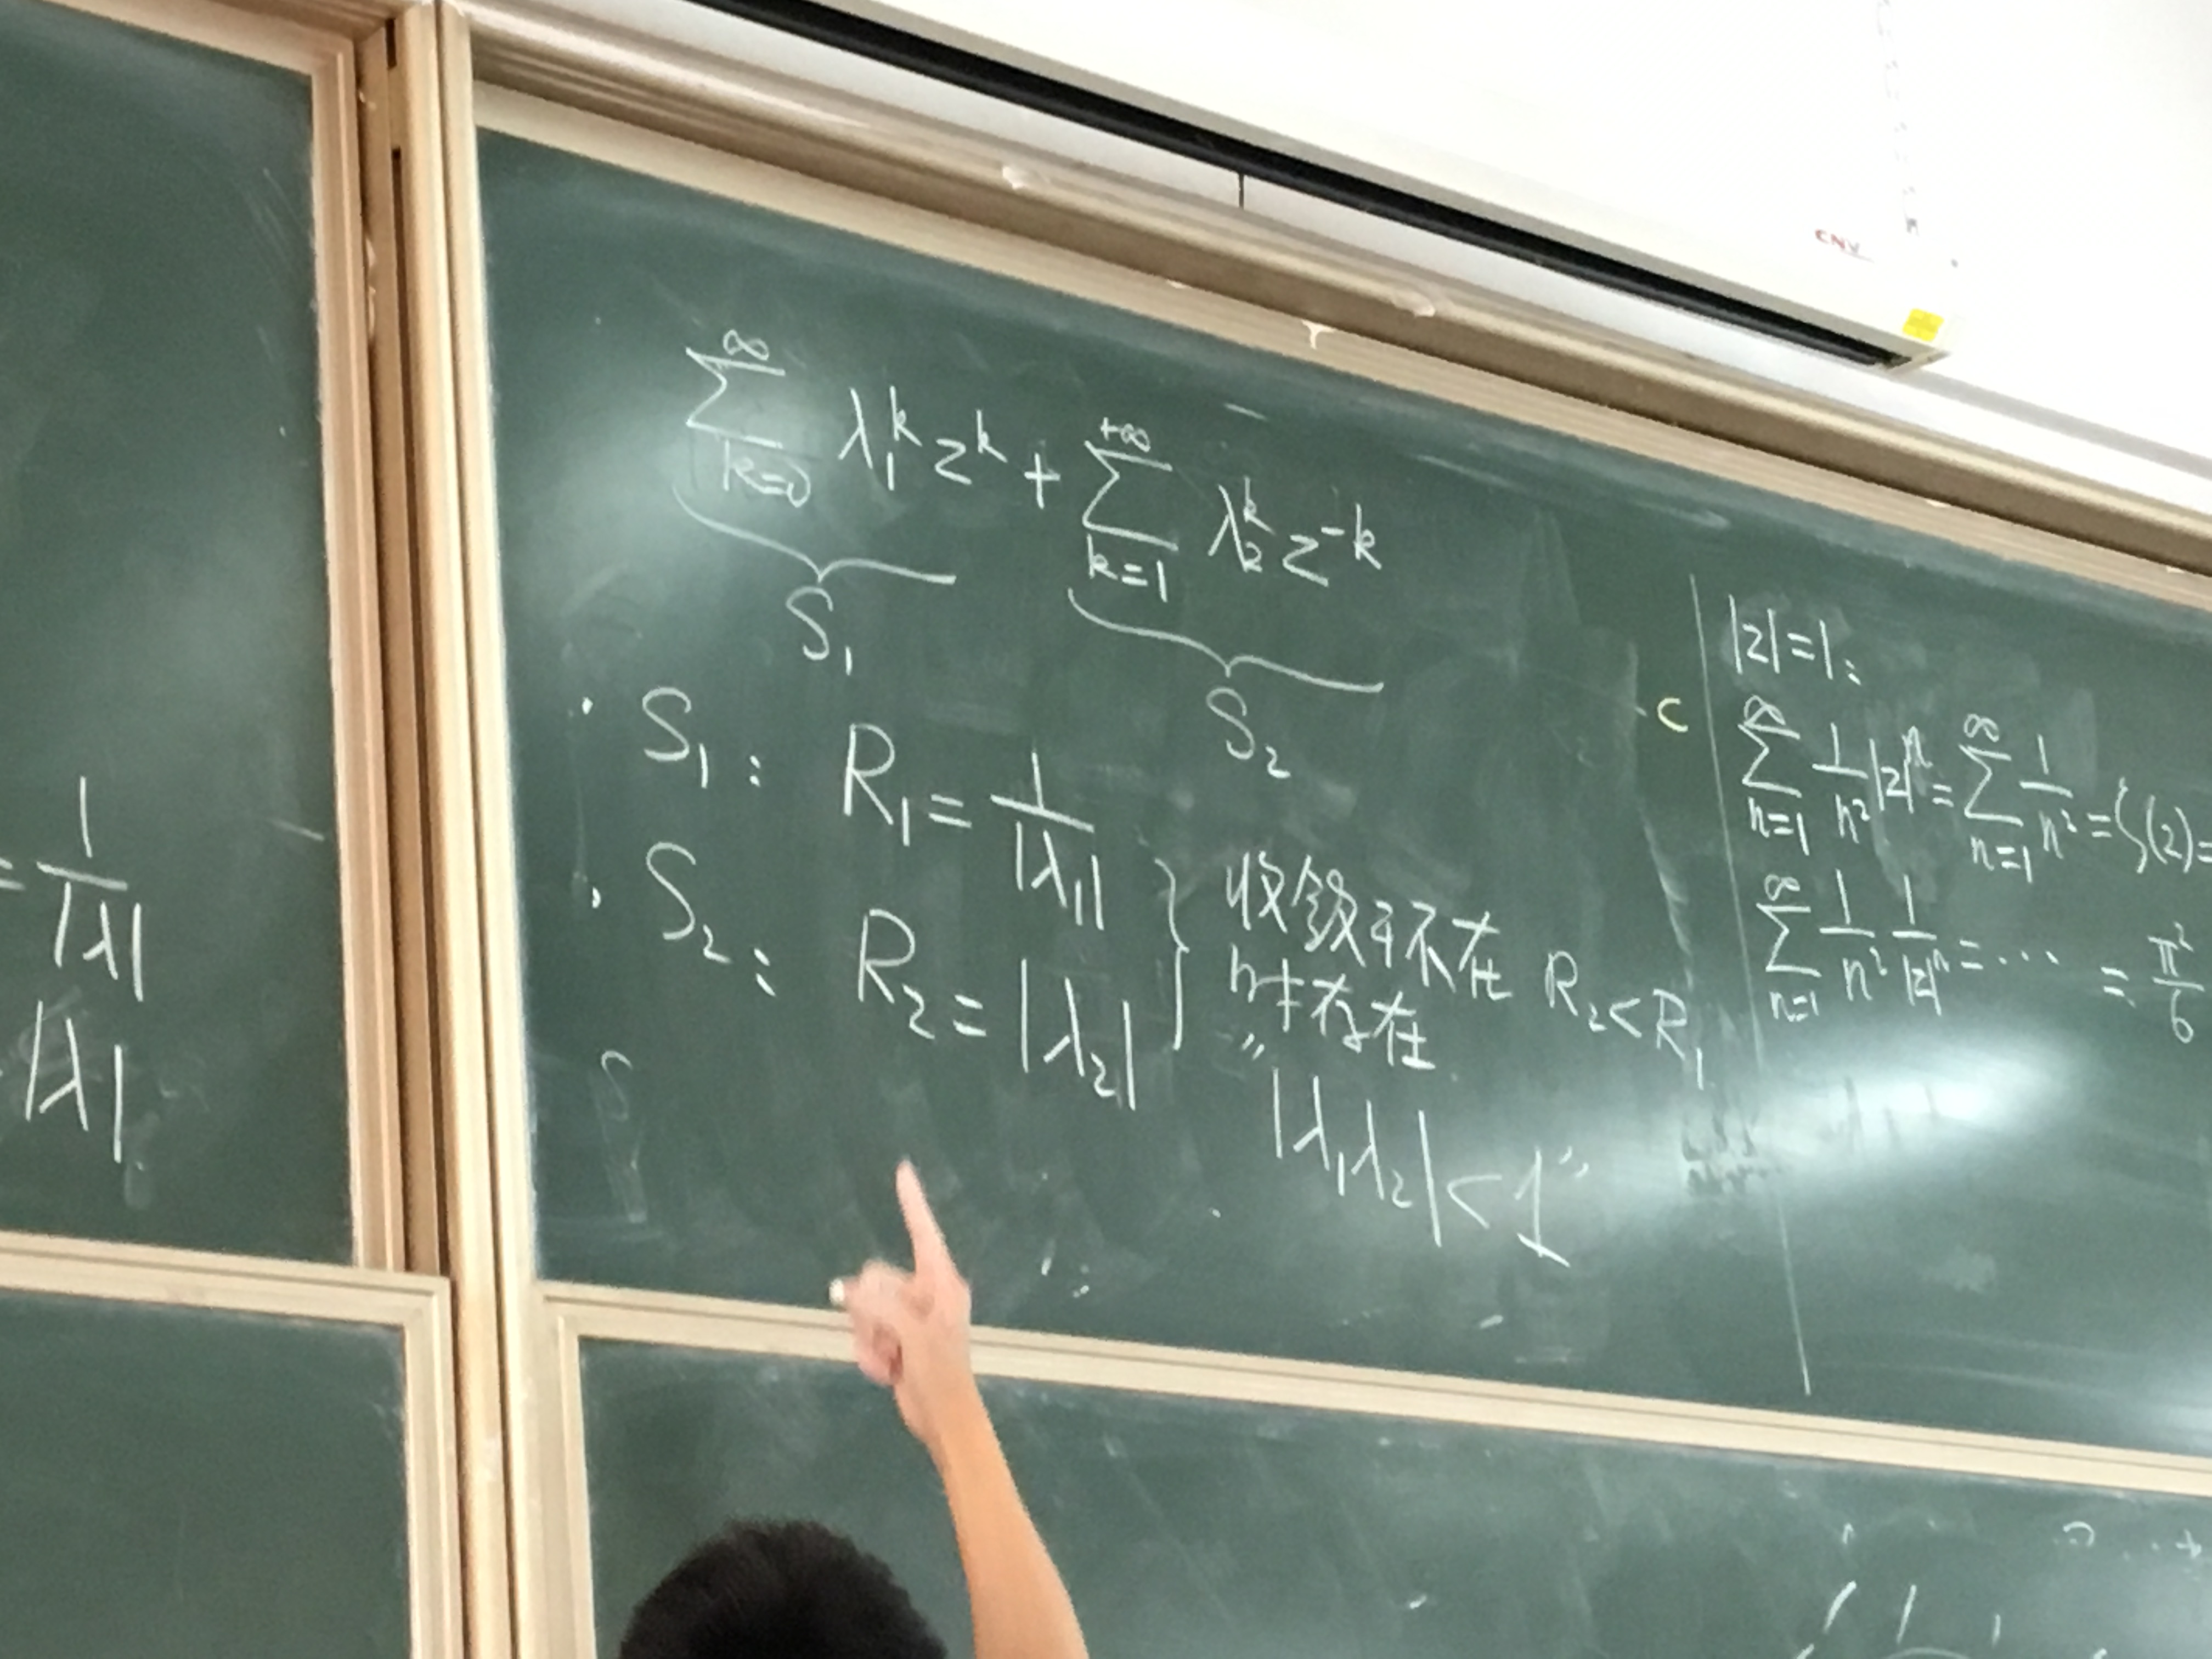 CNV
= 1/|λ|
|λ|
∑_{k=0}^{∞} λ₁^k z^k + ∑_{k=1}^{+∞} λ₂^k z^{-k}
S₁
S₂
· S₁: R₁ = 1/|λ₁|
· S₂: R₂ = |λ₂|
收敛 不在 R₂<R₁
时存在
"|λ₁λ₂|<1"
C
|z|=1:
∑_{n=1}^{∞} 1/n² |z|^n = ∑_{n=1}^{∞} 1/n² = ζ(2)=
∑_{n=1}^{∞} 1/n² 1/|z|^n = ··· = π²/6